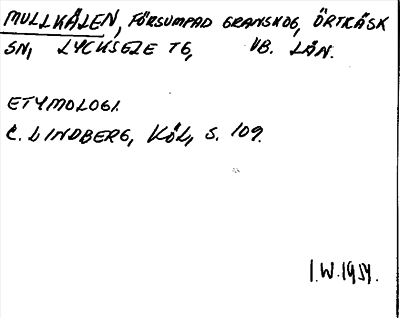 MULLKÅLEN, FÖRSUMPAD GRANSKOG, ÖRTRÄSK
SN, LYCKSELE TG, VB. LÄN.
ETYMOLOGI.
C. LINDBERG, KÖL, S. 109.
I.W. 1959.